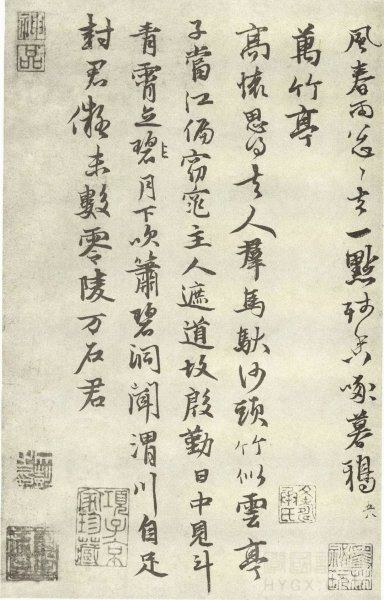 風春雨怱〻去一點啄暮鴉
萬竹亭
高懷思人羣馬馱沙頭竹似雲亭
子當江偏窈窕主人遮道故殷勤日中見斗
青霄立碧月下吹簫碧洞聞渭川自足
封君儗未數零陵万石君
神品
項子京家珍藏